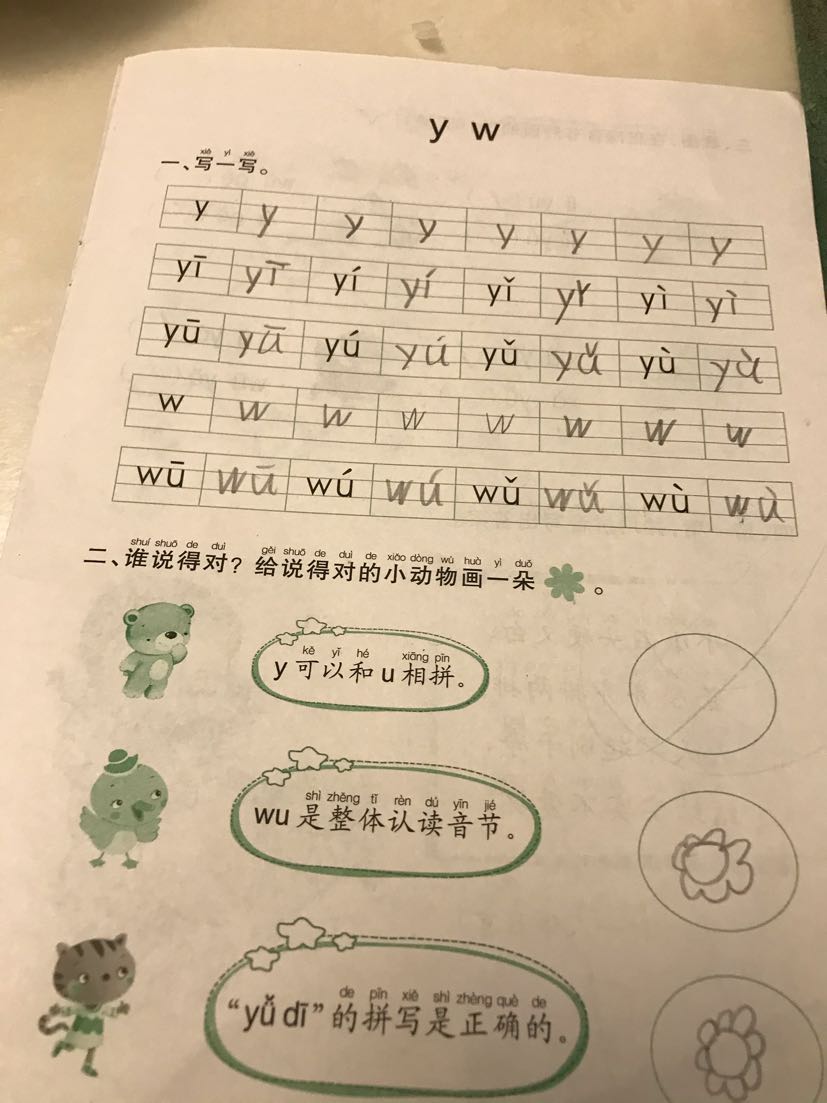 y w
xiě yì xiě
一、写一写。
y y y y y y y y
yī yī yí yí yǐ yǐ yì yì
yū yū yú yú yǔ yǔ yù yù
w w w w w w w w
wū wū wú wú wǔ wǔ wù wù
shuí shuō de duì gěi shuō de duì de xiǎo dòng wù huà yì duǒ
二、谁说得对？给说得对的小动物画一朵 。
kě yǐ hé xiāng pīn
y 可以和 u 相拼。
shì zhěng tǐ rèn dú yīn jié
wu 是整体认读音节。
de pīn xiě shì zhèng què de
“yǚ dī”的拼写是正确的。